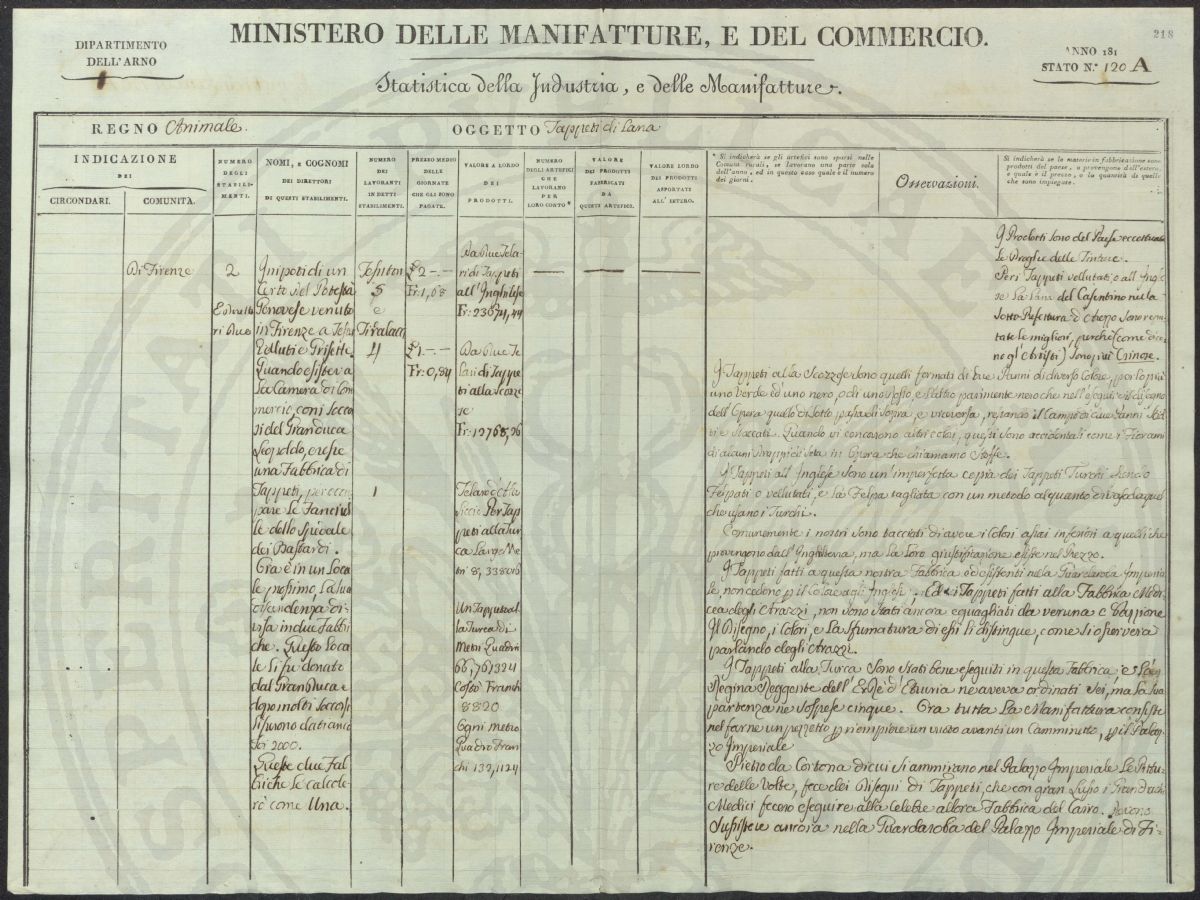 MINISTERO DELLE MANIFATTURE, E DEL COMMERCIO.
218
DIPARTIMENTO
DELL'ARNO
ANNO 181
STATO N.º 120 A
Statistica della Industria, e delle Manifatture.
REGNO Animale.
OGGETTO Tappeti di Lana
INDICAZIONE
DEI
CIRCONDARI.
COMUNITÀ.
NUMERO
DEGLI
STABILI-
MENTI.
NOMI, E COGNOMI
DEI DIRETTORI
DI QUESTI STABILIMENTI.
NUMERO
DEI
LAVORANTI
IN DETTI
STABILIMENTI.
PREZZO MEDIO
DELLE
GIORNATE
CHE GLI SONO
PAGATE.
VALORE A LORDO
DEI
PRODOTTI.
NUMERO
DEGLI ARTEFICI
CHE
LAVORANO
PER
LORO CONTO*
VALORE
DEI PRODOTTI
FABBRICATI
DA
QUESTI ARTEFICI.
VALORE LORDO
DEI PRODOTTI
ASPORTATI
ALL' ESTERO.
* Si indicherà se gli artefici sono sparsi nelle
Comuni rurali, se lavorano una parte sola
dell'anno, ed in questo caso quale è il numero
dei giorni.
Osservazioni.
Si indicherà se le materie in fabbricazione sono
prodotti del paese, o provengono dall'estero,
e quale è il prezzo, o la quantità di quelle
che sono impiegate.
Di Firenze
2
E diretto
ri due
Gnipoti di un
Certo del Potestà
Genovese venuto
in Firenze a Tesser
Velluti e Grisette
Quando esisteva
La Camera di Com
mercio, con i Socco
si del Granduca
Leopoldo, eresse
una Fabbrica di
Tappeti, per occu
pare le Fanciul
le dello spedale
dei Bastardi.
Ora è in un Loca
le prossimo, la sua
discendenza di
visa in due Fabbri
che. Questo Loca
le li fu donato
dal GranDuca e
dopo molti soccorsi
li furono da franc
chi 2000.
Queste due Fab
briche le calcole
rò come Una.
Tessitori
5
e
Tiralacci
4
1
£2 -.-
Fr: 1,68
£1.-.-
Fr: 0,84
Da Due Tela
ri di Tappeti
all'Inghilese
Fr: 23074,44
Da Due Te
lari di Tappe
ti alla Scozze
se
Fr: 13768,76
Telaro d'Alto
liccio Per Tap
peti alla Tur
ca Largo Me
tri 8,338076
Un Tappeto al
la Turca di
Metri Quadri
66,761324
Costò Franchi
8820
Ogni Metro
Quadro Fran
chi 132,1124
I Prodotti sono del Paese eccettuate
le Droghe delle Tinture.
Per i Tappeti vellutati, o all'Ingle
se La Lana del Casentino nella
Sotto Prefettura d'Arezzo sono repu
tate le migliori, perchè (come dico
no gl'Artisti) sono più Crinose.
I Tappeti alla Scozzese sono quelli formati di due Panni di diverso Colore, per lo più
uno verde ed uno nero, o di uno Rosso, e l'altro parimente nero che nell'eseguire il disegno
dell'Opera quello di sotto passa di sopra, e viceversa, restando il Campo di due Panni
e staccati. Quando vi concorrono altri colori, questi sono accidentali come i Fiorami
di alcuni Drappi di Seta in Opera che chiamano Stoffe.
I Tappeti all'Inglese sono un'imperfetta copia dei Tappeti Turchi essendo
Felpati o vellutati, e la Felpa tagliata con un metodo alquanto diverso da quel
che usano i Turchi.
Comunemente i nostri sono tacciati di avere i Colori assai inferiori a quelli che
provengono dall'Inghilterra, ma la Loro giustificazione esiste nel Prezzo.
I Tappeti fatti a questa nostra Fabbrica ed esistenti nella Guardaroba Imperia
le, non cedono p il Colore agli Inglesi. Ed i Tappeti fatti alla Fabbrica Medi
cea degli Arazzi, non sono stati ancora eguagliati da veruna Nazione
Il Disegno, i Colori, e La sfumatura di essi li distingue, come si osserverà
parlando degli Arazzi.
I Tappeti alla Turca sono stati bene eseguiti in questa Fabbrica, e La
Regina Reggente dell'ExRe d'Etruria ne aveva ordinati sei, ma la sua
partenza ne sospese cinque. Ora tutta La Manifattura consiste
nel farne un pezzetto p riempire un vuoto avanti un Camminetto, p il Palaz
zo Imperiale
Pietro da Cortona di cui si ammirano nel Palazzo Imperiale Le Pittu
re delle Volte, fece dei Disegni di Tappeti, che con gran Lusso i Granduchi
Medici fecero eseguire alla Celebre allora Fabbrica del Cairo.
Sussistere ancora nella Guardaroba del Palazzo Imperiale di Fi
renze.